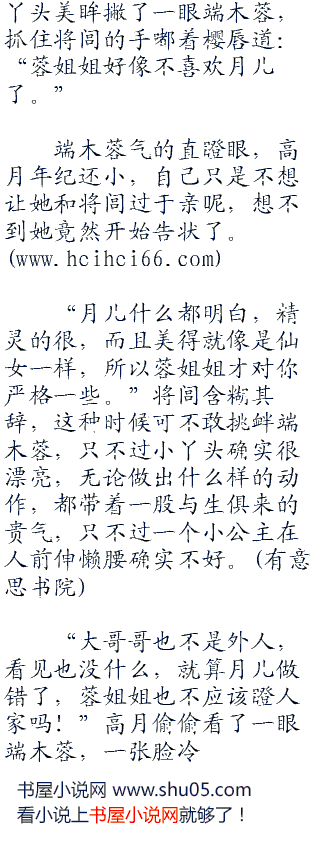 丫头美眸撇了一眼端木蓉，
抓住将闾的手嘟着樱唇道：
“蓉姐姐好像不喜欢月儿
了。”
端木蓉气的直瞪眼，高
月年纪还小，自己只是不想
让她和将闾过于亲昵，想不
到她竟然开始告状了。
(www.hcihci66.com)
“月儿什么都明白，精
灵的很，而且美得就像是仙
女一样，所以蓉姐姐才对你
严格一些。”将闾含糊其
辞，这种时候可不敢挑衅端
木蓉，只不过小丫头确实很
漂亮，无论做出什么样的动
作，都带着一股与生俱来的
贵气，只不过一个小公主在
人前伸懒腰确实不好。(有意
思书院)
“大哥哥也不是外人，
看见也没什么，就算月儿做
错了，蓉姐姐也不应该瞪人
家吗！”高月偷偷看了一眼
端木蓉，一张脸冷
书屋小说网 www.shu05.com
看小说上书屋小说网就够了！